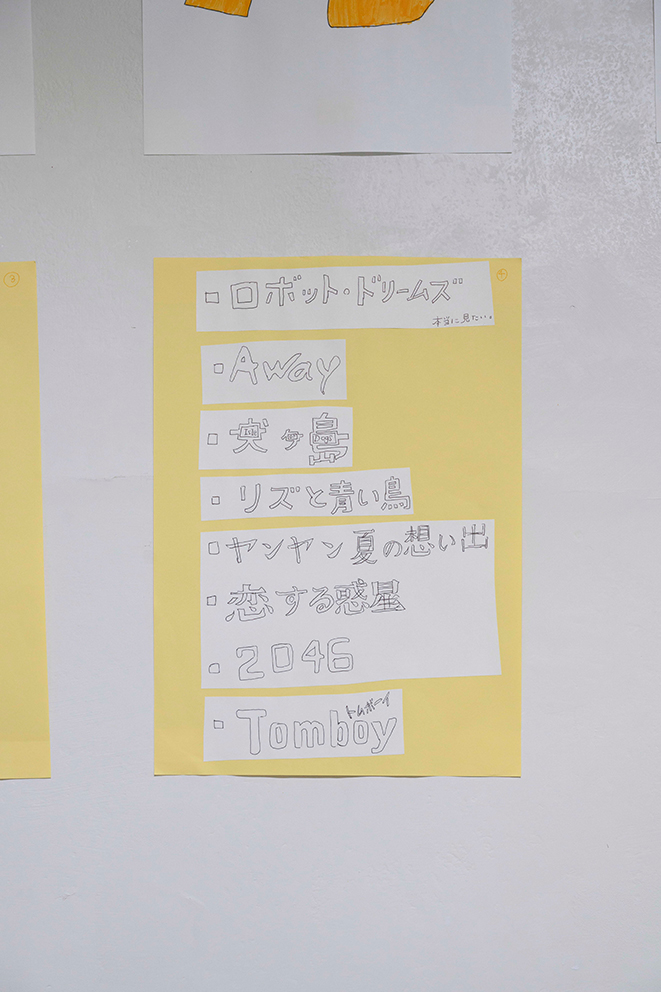 ・ロボット・ドリームズ
本当に見たい。
・Away
・犬ヶ島
・リズと青い鳥
・ヤンヤン夏の想い出
・恋する惑星
・2046
・Tomboy
トムボーイ